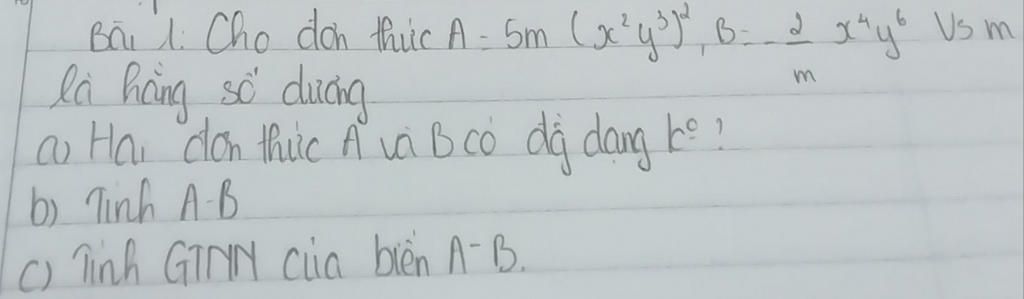 Bài 1: Cho đơn thức A = 5m (x²y³)², B = -2/m x⁴y⁶ Vs m
là hằng số dương
a) Hai đơn thức A và B có đg dạng kº?
b) Tính A-B
c) Tính GTNN của biến A-B.